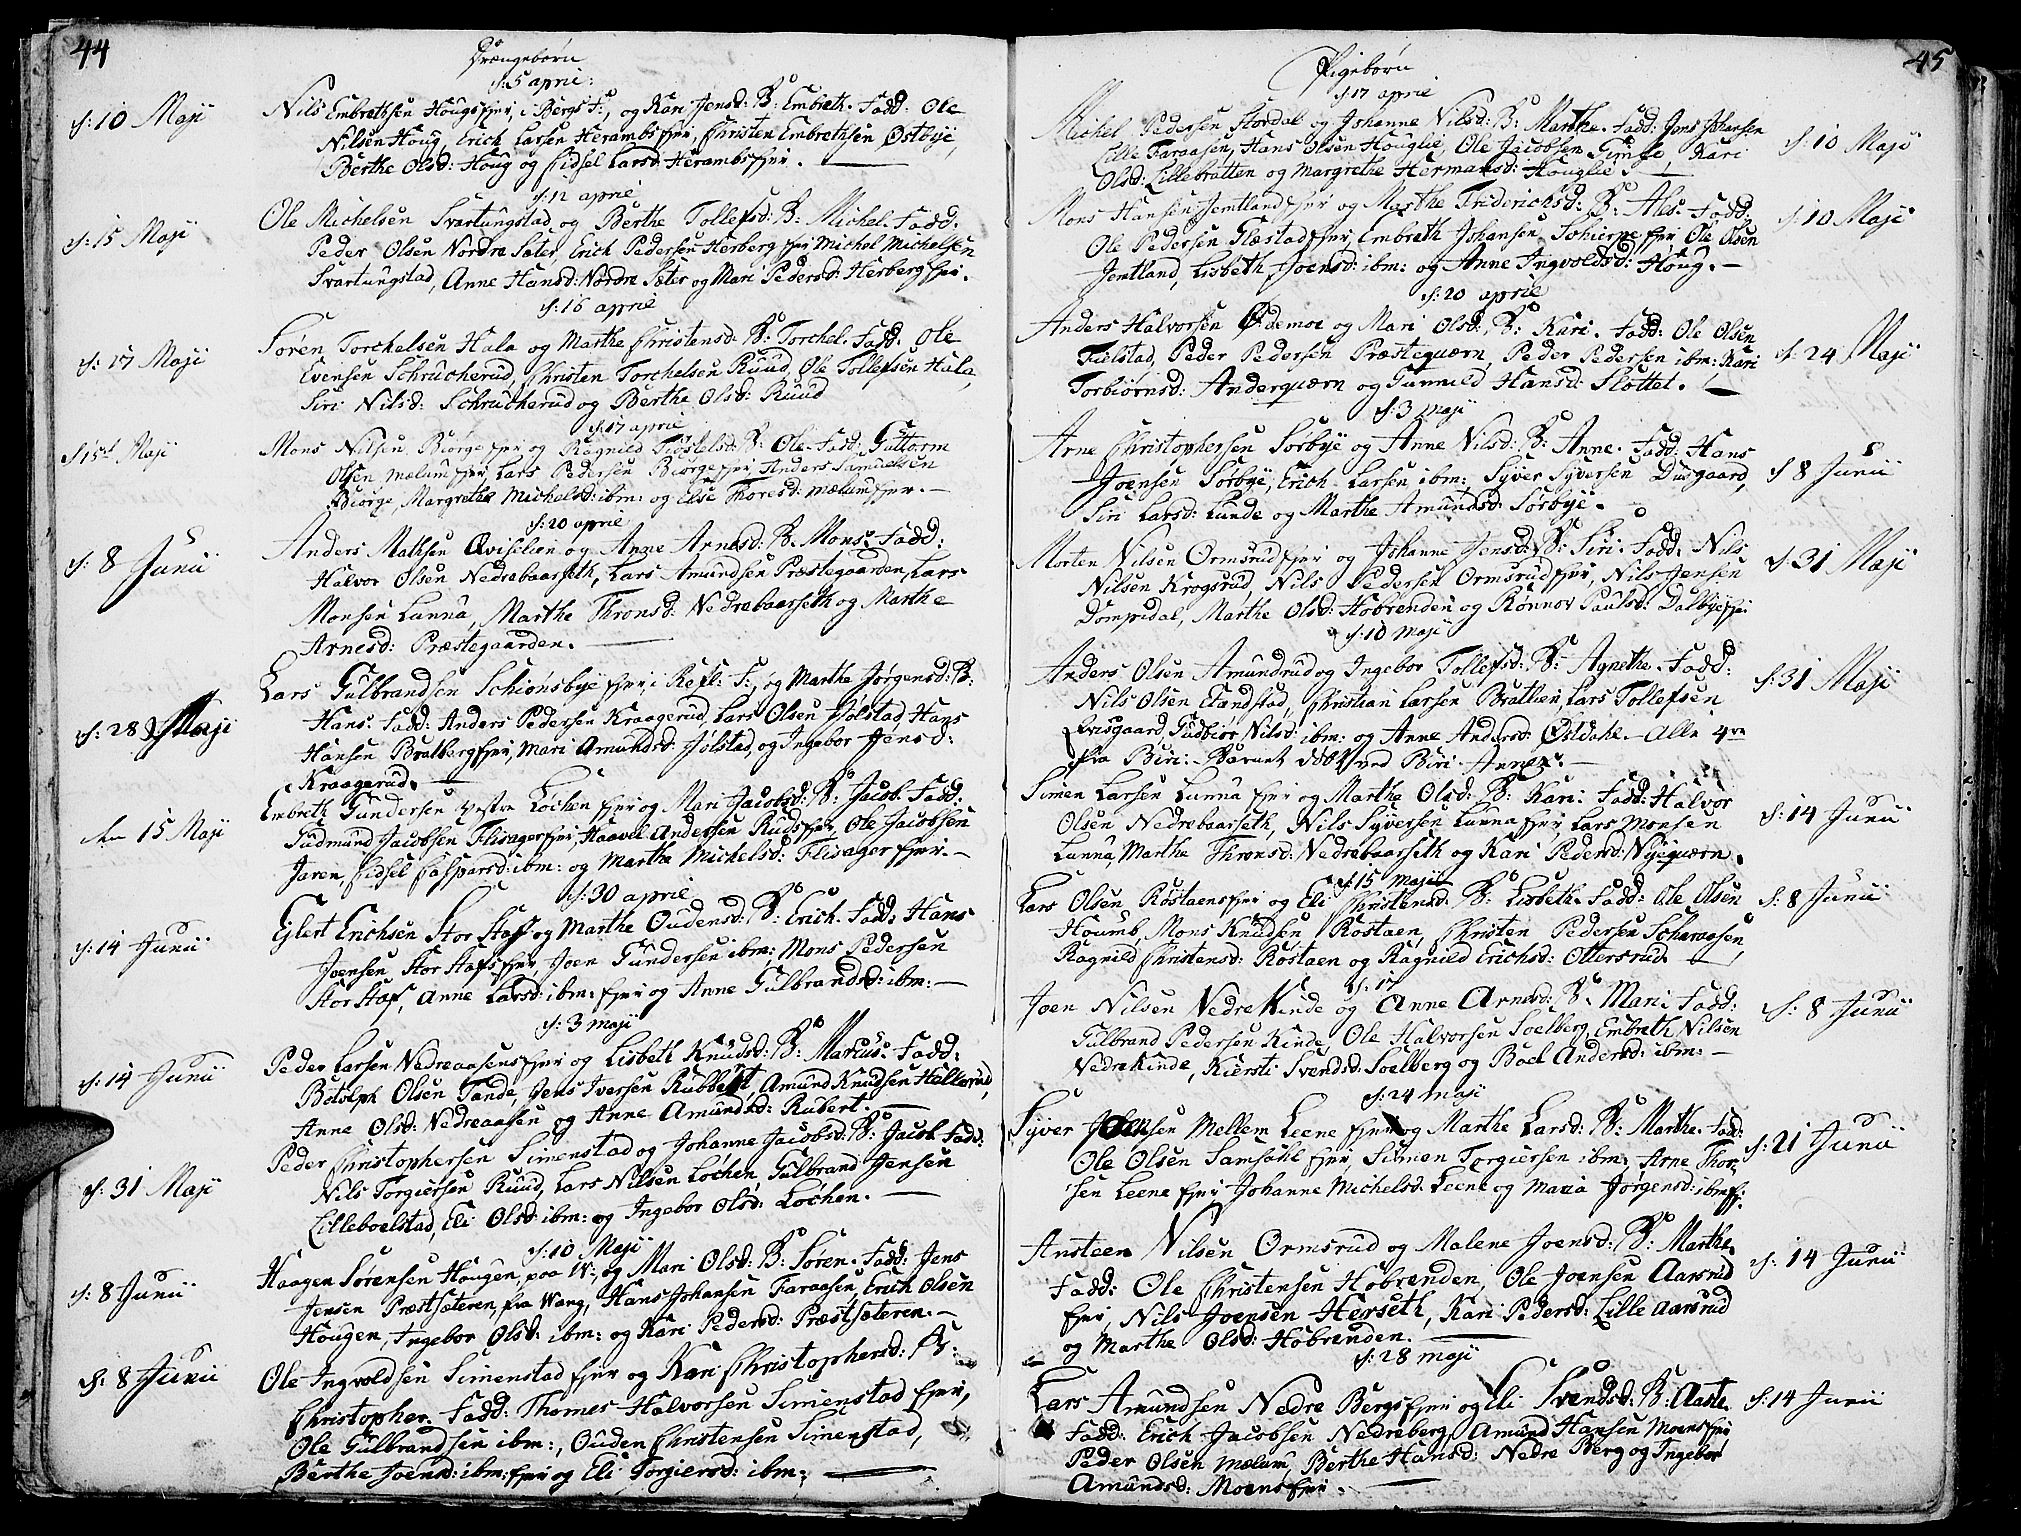 44
Drængebørn
d: 5 april:
d: 10 Maji
Nils Embrethsen Hougs Ejer, i Bergs F:, og Kari Jensd: B: Embreth. Fadd: Ole
Nilsen Houg, Erich Larsen Herambs Ejer, Christen Embrethsen Østbye,
Berthe Olsd: Houg og Sidsel Larsd: Herambs Ejer.
d: 12 april
d: 15 Maji
Ole Michelsen Svartungstad og Berthe Tollefsd: B: Michel. Fadd:
Peder Olsen Nordre Sæter, Erich Pedersen Herberg Ejer Michel Michelsen
Svartungstad, Anne Hansd: Nordre Sæter og Mari Pedersd: Herberg Ejer.
d: 16 april
d: 17 Maji
Søren Torchelsen Hala og Marthe Christensd: B: Torchel. Fadd: Ole
Evensen Schrucherud, Christen Torchelsen Ruud, Ole Tollefsen Hala,
Siri Nilsd: Schrucherud og Berthe Olsd: Ruud
d: 17 april
d 15d Maji
Mons Nilsen Biørge Ejer og Ragnild Tiøstelsd: B: Ole. Fadd: Guttorm
Olsen Mælum Ejer, Lars Pedersen Biørge Ejer, Anders Samuelsen
Biørge, Margrethe Michelsd: ibm: og Else Thoresd: Mælum Ejer.
d: 20 april
d: 8 Junii
Anders Mathsen Qviselien og Anne Arnesd: B. Mons. Fadd:
Halvor Olsen Nedrebaarseth, Lars Amundsen Præstegaarden, Lars
Monsen Lunna, Marthe Thronsd: Nedrebaarseth og Marthe
Arnesd: Præstegaarden.
d: 28 Maji
Lars Gulbrandsen Schiønsbye Ejer, i Refl: F:, og Marthe Jørgensd: B:
Hans. Fadd: Anders Pedersen Kraagerud, Lars Olsen Jølstad, Hans
Hansen Bratberg Ejer, Mari Amundsd: Jølstad, og Ingebor Jensd:
Kraagerud.
den 15 Maji
Embreth Gundersen Vestre Løchen Ejer og Mari Jacobsd: B: Jacob. Fadd:
Gudmund Jacobsen Flisager Ejer, Haavel Andersen Ruds Ejer, Ole Jacobsen
Jaren, Sidsel Casparsd: ibm: og Marthe Michelsd: Flisager Ejer.
d: 30 april
d: 14 Junii
Eilert Erichsen Stor Staf og Marthe Oudensd: B: Erich. Fadd: Hans
Joensen Stor Stafs Ejer, Joen Gundersen ibm: Mons Pedersen
Stor Staf, Anne Larsd: ibm: Ejer og Anne Gulbrandsd: ibm:
d: 3 maji
d: 14 Junii
Peder Larsen Nedreaasens Ejer og Lisbeth Knudsd: B: Marcus. Fadd:
Botolph Olsen Tande, Jens Iversen Rubbert, Amund Knudsen Hallerud,
Anne Olsd: Nedreaasen og Anne Amundsd: Rubert.
d: 31 Maji
Peder Christophersen Simenstad og Johanne Jacobsd: B: Jacob Fadd:
Nils Torgiersen Ruud, Lars Nilsen Løchen, Gulbrand Jensen
Lilleboelstad, Eli Olsd: ibm: og Ingebor Olsd: Løchen.
d: 10 Maji
d: 8 Junii
Haagen Sørensen Hougen, paa N:, og Mari Olsd: B: Søren. Fadd: Jens
Jensen Præstsæteren, fra Wang, Hans Johansen Faraasen, Erich Olsen
Hougen, Ingebor Olsd: ibm: og Kari Pedersd: Præstsæteren.
d: 8 Junii
Ole Ingvoldsen Simenstad Ejer og Kari Christophersd: B:
Christopher. Fadd: Thomes Halvorsen Simenstad Ejer,
Ole Gulbrandsen ibm:, Ouden Christensen Simenstad,
Berthe Joensd: ibm: Ejer og Eli Torgiersd: ibm:
45
Pigebørn
d: 17 april
Michel Pedersen Stordal og Johanne Nilsd: B: Marthe. Fadd: Jens Johansen
Lille Faraasen, Hans Olsen Houglie, Ole Jacobsen Simle, Kari
Olsd: Lillebratten og Margrethe Hermansd: Houglie.
d: 10 Maji
Mons Hansen Jemtland Ejer og Marthe Friderichsd: B: Ales. Fadd:
Ole Pedersen Glæstad Ejer, Embreth Johansen Schierpe Ejer Ole Olsen
Jemtland, Lisbeth Joensd: ibm: og Anne Ingvoldsd: Houg.
d: 10 Maji
d: 20 april
Anders Halvorsen Ødemoe og Mari Olsd: B: Kari. Fadd: Ole Olsen
Fielstad, Peder Pedersen Præsteqværn, Peder Pedersen ibm: Kari
Torbiørnsd: Anderqværn og Gunnild Hansd: Slottet.
d. 24 Maji
d: 3 maji
Arne Christophersen Sørbye og Anne Nilsd: B: Anne. Fadd: Hans
Joensen Sørbye, Erich Larsen ibm:, Syver Syversen Dusgaard,
Siri Larsd: Lunde og Marthe Amundsd: Sørbye.
d 8 Junii
Morten Nilsen Ormsrud Ejer og Johanne Jensd: B: Siri. Fadd: Nils
Nilsen Krogsrud, Nils Pedersen Ormsrud Ejer, Nils Jensen
Dompidal, Marthe Olsd: Høbrenden og Rønnov Paulsd: Dalbye Ejer
d: 31 Maji
d: 10 maji
Anders Olsen Amundrud og Ingebor Tollefsd: B: Agnethe. Fadd:
Nils Olsen Etandstad, Christian Larsen Bratlien, Lars Tollefsen
Evisgaard, Gudbior Nilsd: ibm: og Anne Andersd: Østdahl. Alle 4re
fra Biri. Barnet døbt ved Biri Annex.
d: 31 Maji
Simen Larsen Lunna Ejer og Marthe Olsd: B: Kari. Fadd: Halvor
Olsen Nedrebaarseth, Nils Syversen Lunna Ejer Lars Monsen
Lunna, Marthe Thronsd: Nedrebaarseth og Kari Pedersd: Nyeqværn.
d: 14 Junii
d: 15 Maji
Lars Olsen Rostaens Ejer og Eli Christensd: B: Lisbeth. Fadd: Ole Olsen
Houmb, Mons Knudsen Rostaen, Christen Pedersen Scharaasen,
Ragnild Christensd: Rostaen og Ragnild Erichsd: Ottersrud.
d: 8 Junii
d: 17
Joen Nilsen Nedre Kinde og Anne Arnesd: B: Mari. Fadd:
Gulbrand Pedersen Kinde, Ole Halvorsen Soelberg, Embreth Nilsen
Nedre Kinde, Kiersti Svendsd: Soelberg og Boel Andersd: ibm:
d: 8 Junii
d: 24 maji
Syver Jensen Mellem Leene Ejer og Marthe Larsd: B: Marthe. Fad:
Ole Olsen Samsahl Ejer, Simen Torgiersen ibm:, Arne Thor-
sen Leene Ejer, Johanne Michelsd: Leene og Maria Jørgensd: ibm Ej:
d: 21 Junii
Ansteen Nilsen Ormsrud og Malene Joensd: B: Marthe.
Fadd: Ole Christensen Høbrenden, Ole Joensen Aarsrud
Ejer, Nils Joensen Herseth, Kari Pedersd: Lille Aarsrud
og Marthe Olsd: Høbrenden.
d: 14 Junii
d: 28 maji
Lars Amundsen Nedre Bergs Ejer og Eli Svendsd: B: Aaste.
Fadd: Erich Jacobsen Nedreberg, Amund Hansen Moens Ejer
Peder Olsen Mælum, Berthe Hansd: Nedre Berg og Ingebor
Amundsd: Moens Ejer.
d: 14 Junii